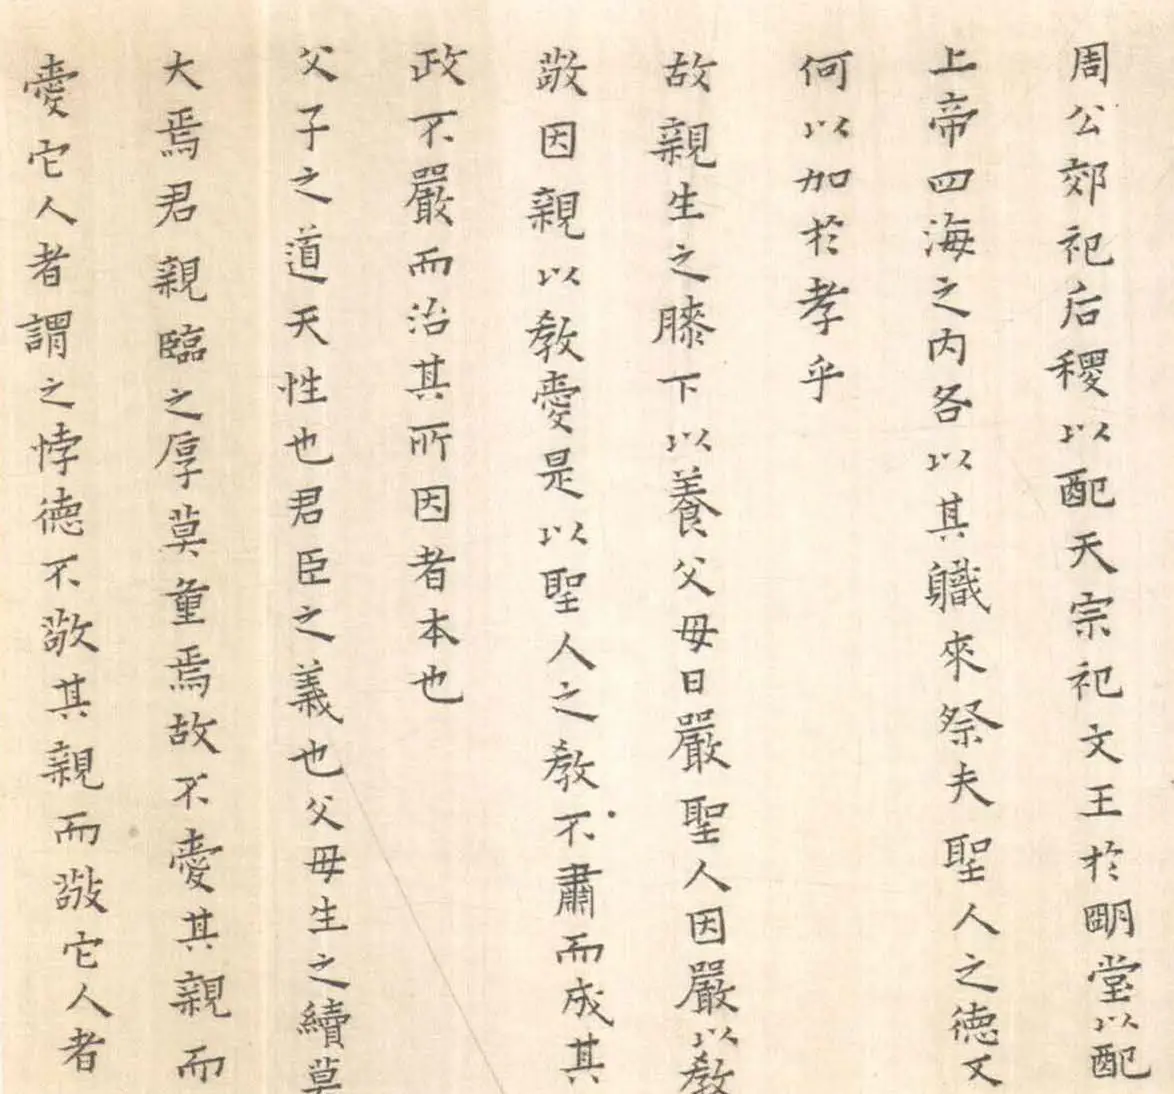 周公郊祀后稷以配天宗祀文王於明堂以配
上帝四海之内各以其職來祭夫聖人之德又
何以加於孝乎
故親生之膝下以養父母日嚴聖人因嚴以教
敬因親以教愛是以聖人之教不肅而成其
政不嚴而治其所因者本也
父子之道天性也君臣之義也父母生之續莫
大焉君親臨之厚莫重焉故不愛其親而
愛它人者謂之悖德不敬其親而敬它人者